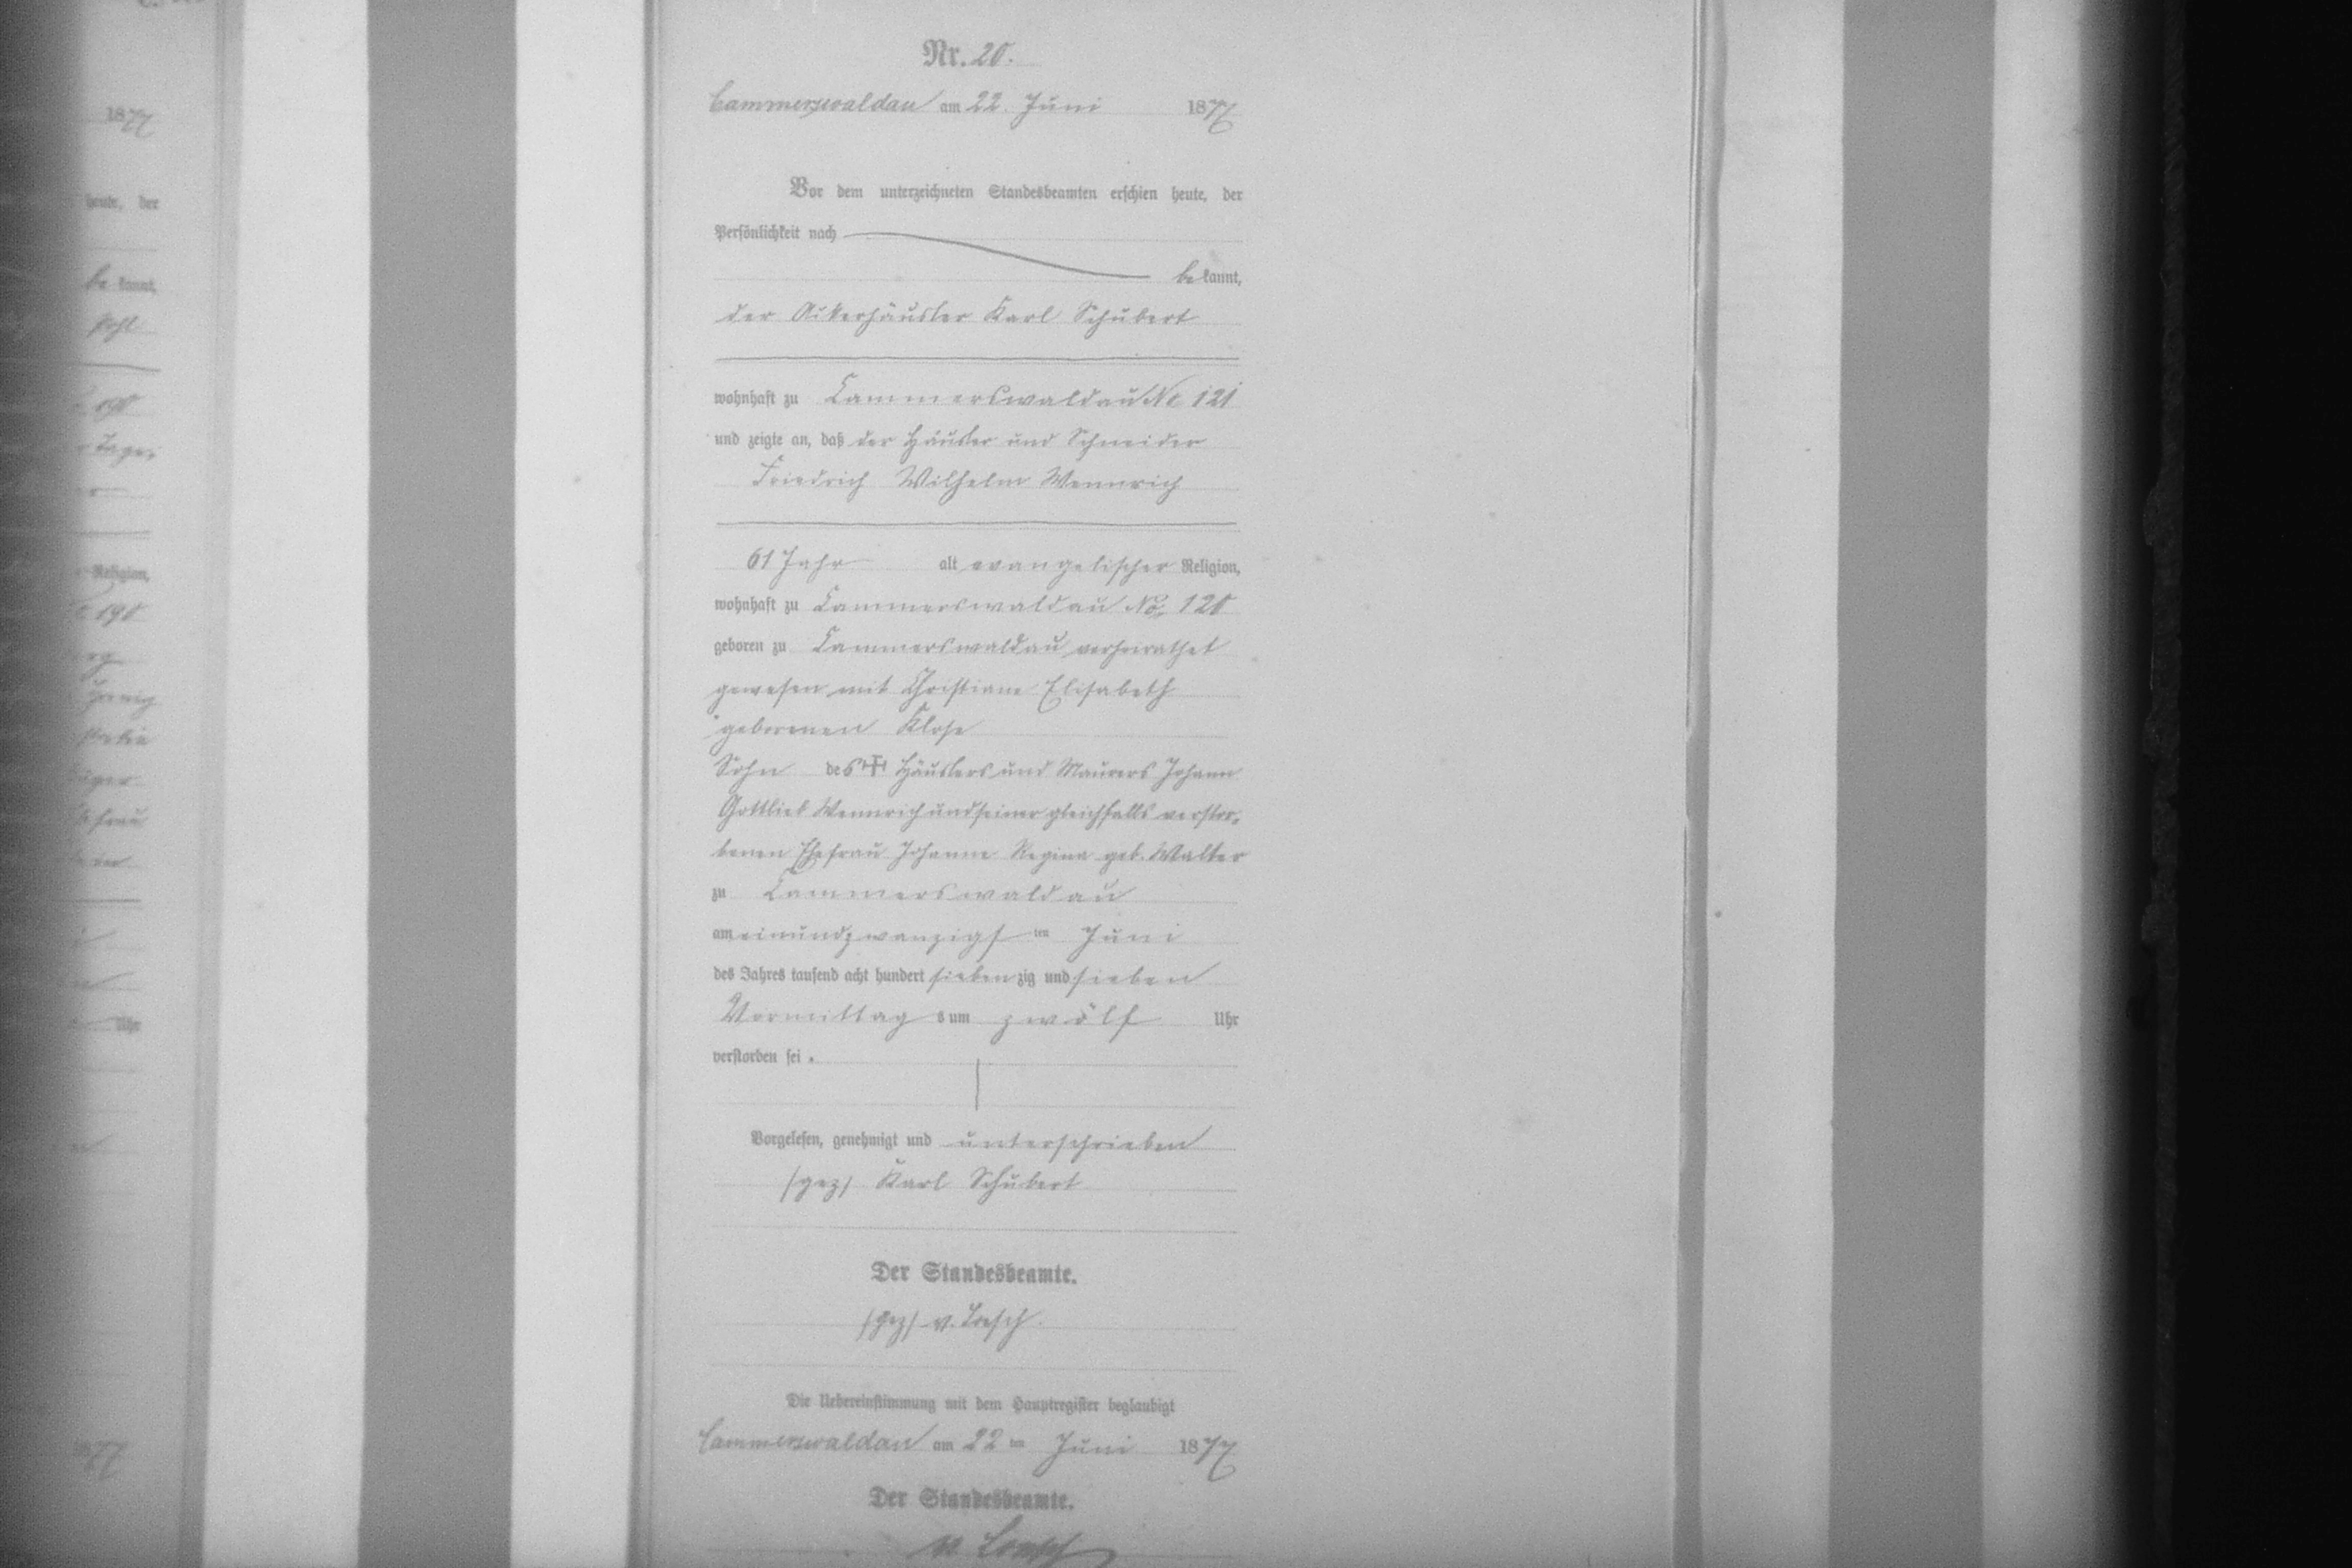 Nr. 20.
Cammerswaldau am 22. Juni 1877
Vor dem unterzeichneten Standesbeamten erschien heute, der
Persönlichkeit nach
bekannt,
der Ackerhäusler Karl Schubert
wohnhaft zu Cammerswaldau No 121
und zeigte an, daß der Häusler und Schneider
Friedrich Wilhelm Wennrich
61 Jahr alt evangelischer Religion,
wohnhaft zu Cammerswaldau No. 120
geboren zu Cammerswaldau verheirathet
gewesen mit Christiane Elisabeth
geborenen Klose
Sohn des Häuslers und Maurers Johann
Gottlieb Wennrich und seiner gleichfalls verstor-
benen Ehefrau Johanne Regina geb. Walter
zu Cammerswaldau
am einundzwanzigsten Juni
des Jahres tausend acht hundert siebenzig und sieben
Vormittags um zwölf Uhr
verstorben sei.
Vorgelesen, genehmigt und unterschrieben
(gez) Karl Schubert
Der Standesbeamte.
(gez) v. Loesch.
Die Uebereinstimmung mit dem Hauptregister beglaubigt
Cammerswaldau am 22ten Juni 1877
Der Standesbeamte.
v. Loesch
1877
heute, der
bekannt,
Religion,
Uhr